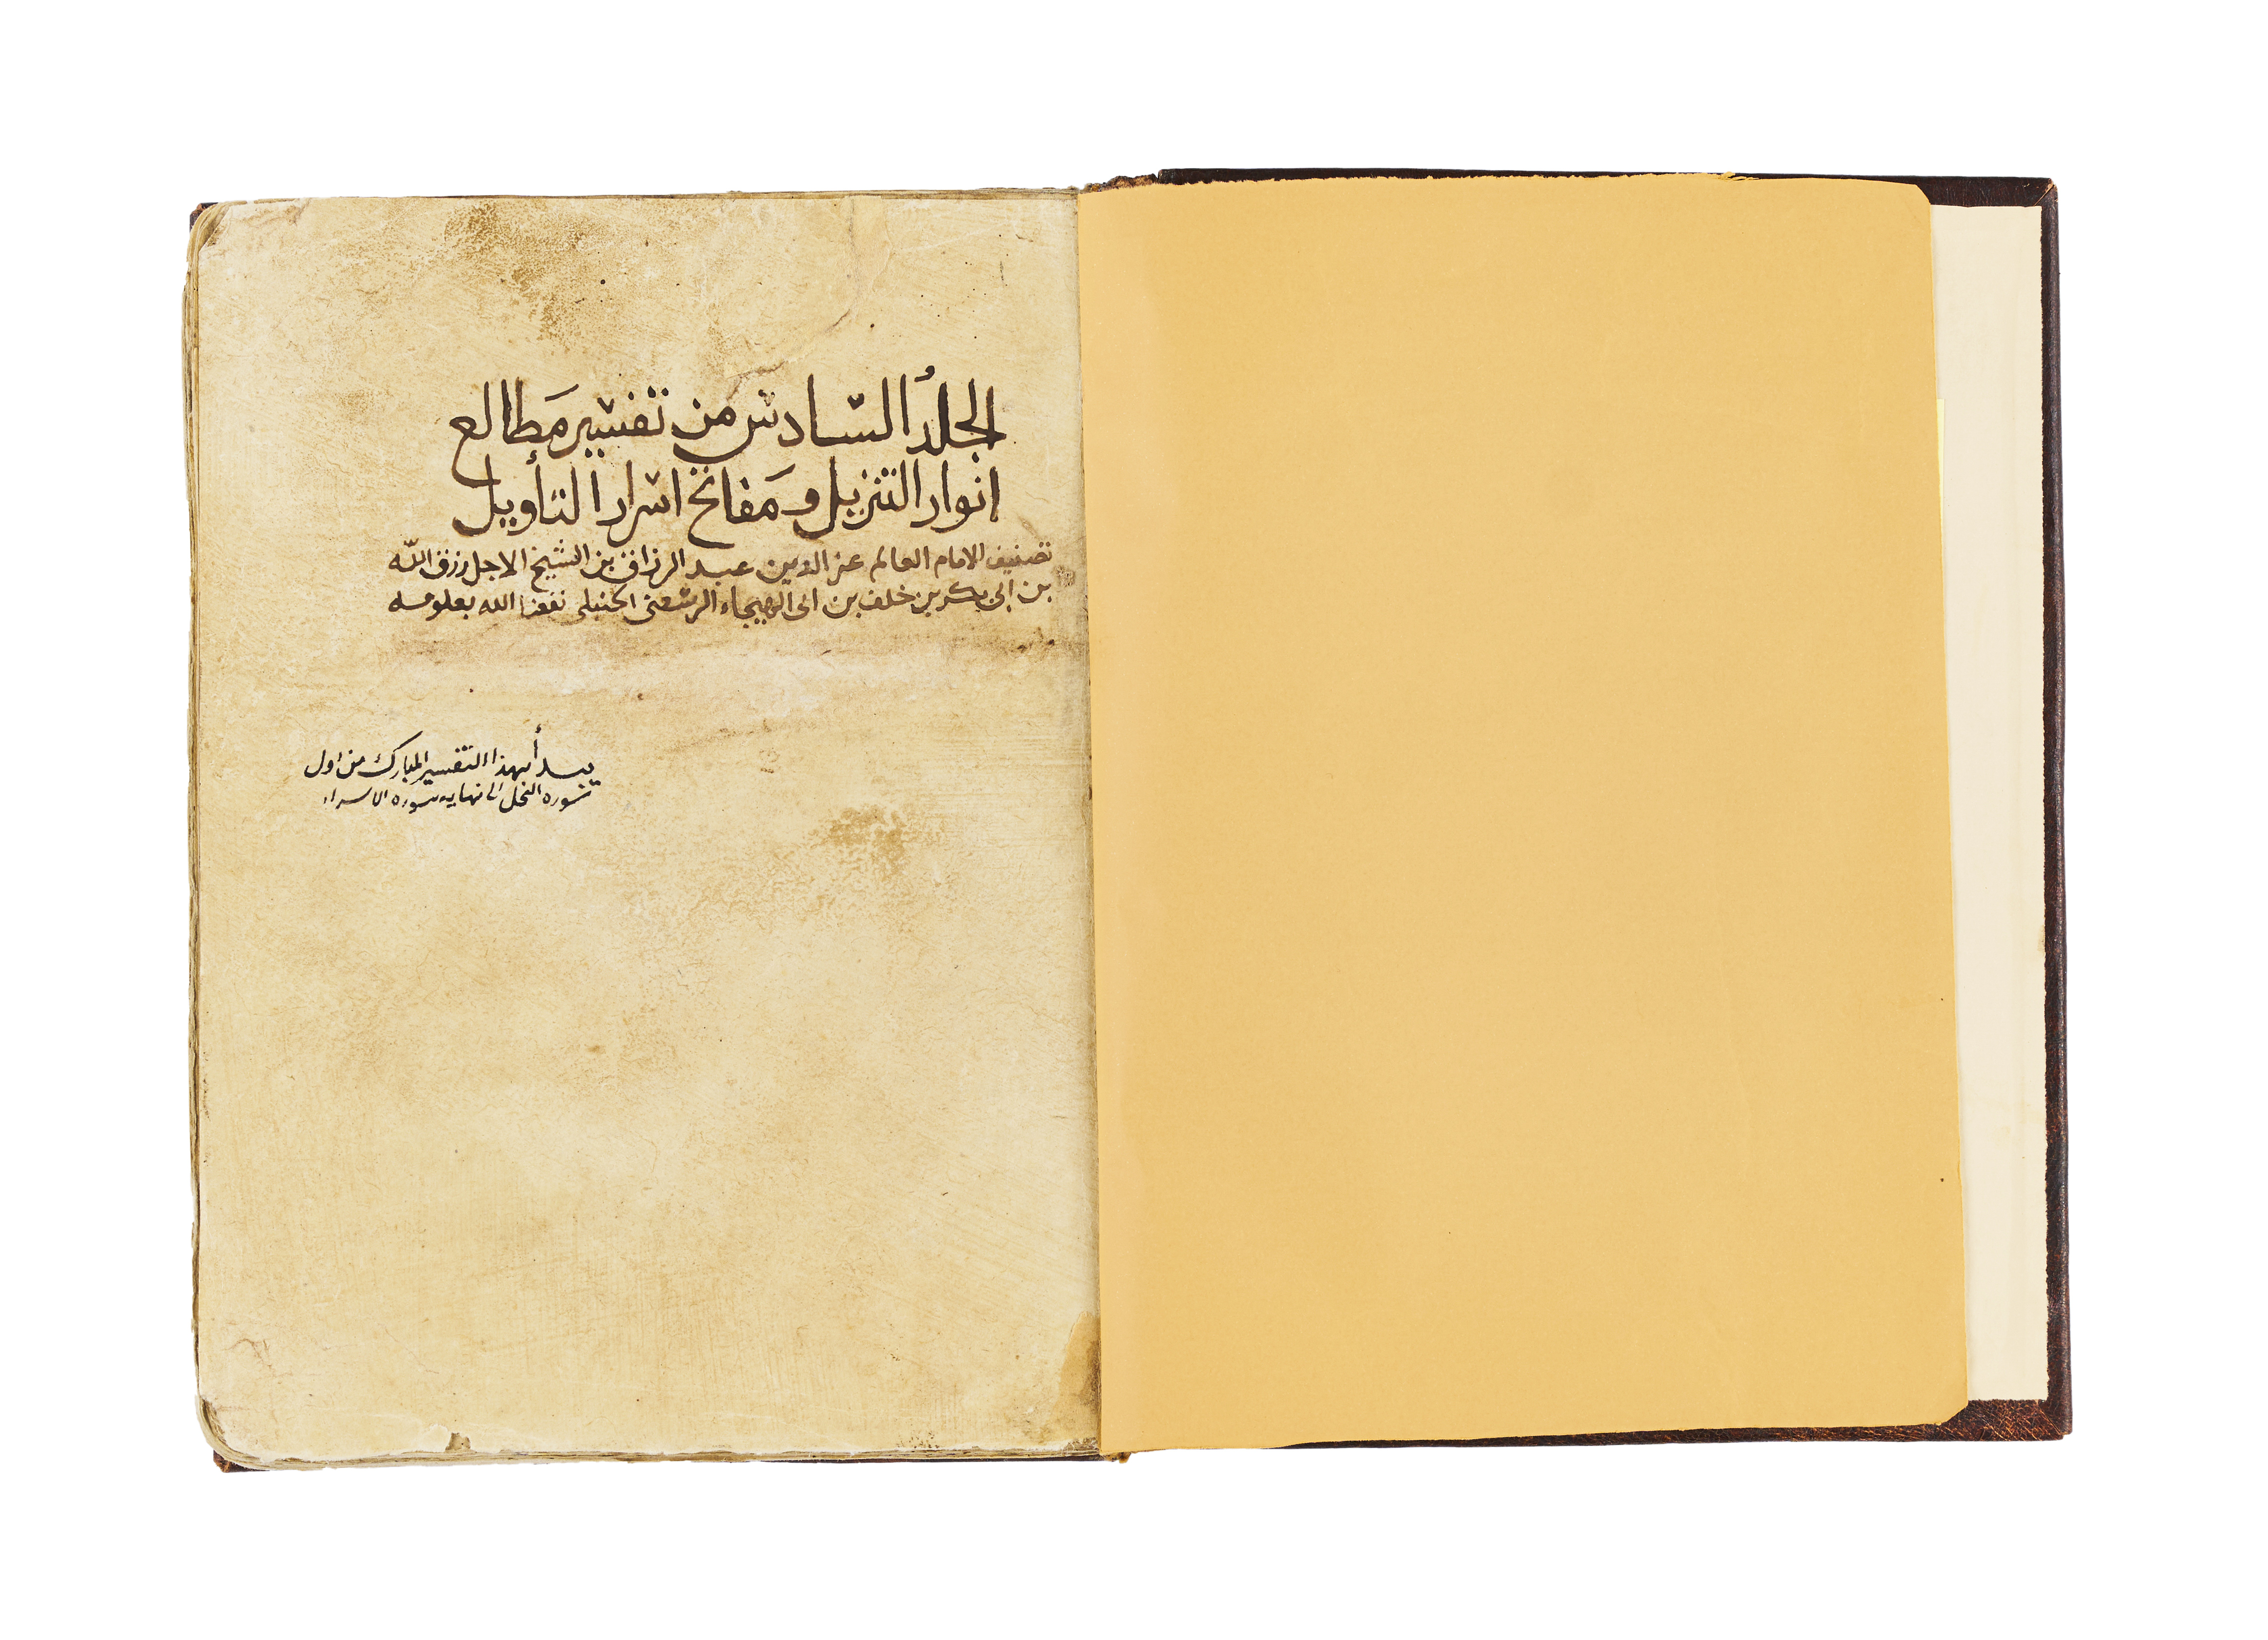 الجلدُ السّادس من تفسير مَطالع
انوار التنزيل ومَفاتح اسرار التأويل
تصنيف الامام العالم عز الدين عبد الرزاق بن الشيخ الاجل رزق الله
بن ابى بكر بن خلف بن ابى الهيجاء الرسعنى الحنبلى نفعنا الله بعلومه
يبدأ بهذا التفسير المبارك من اول
سوره النحل الى نهايه سوره الاسراء